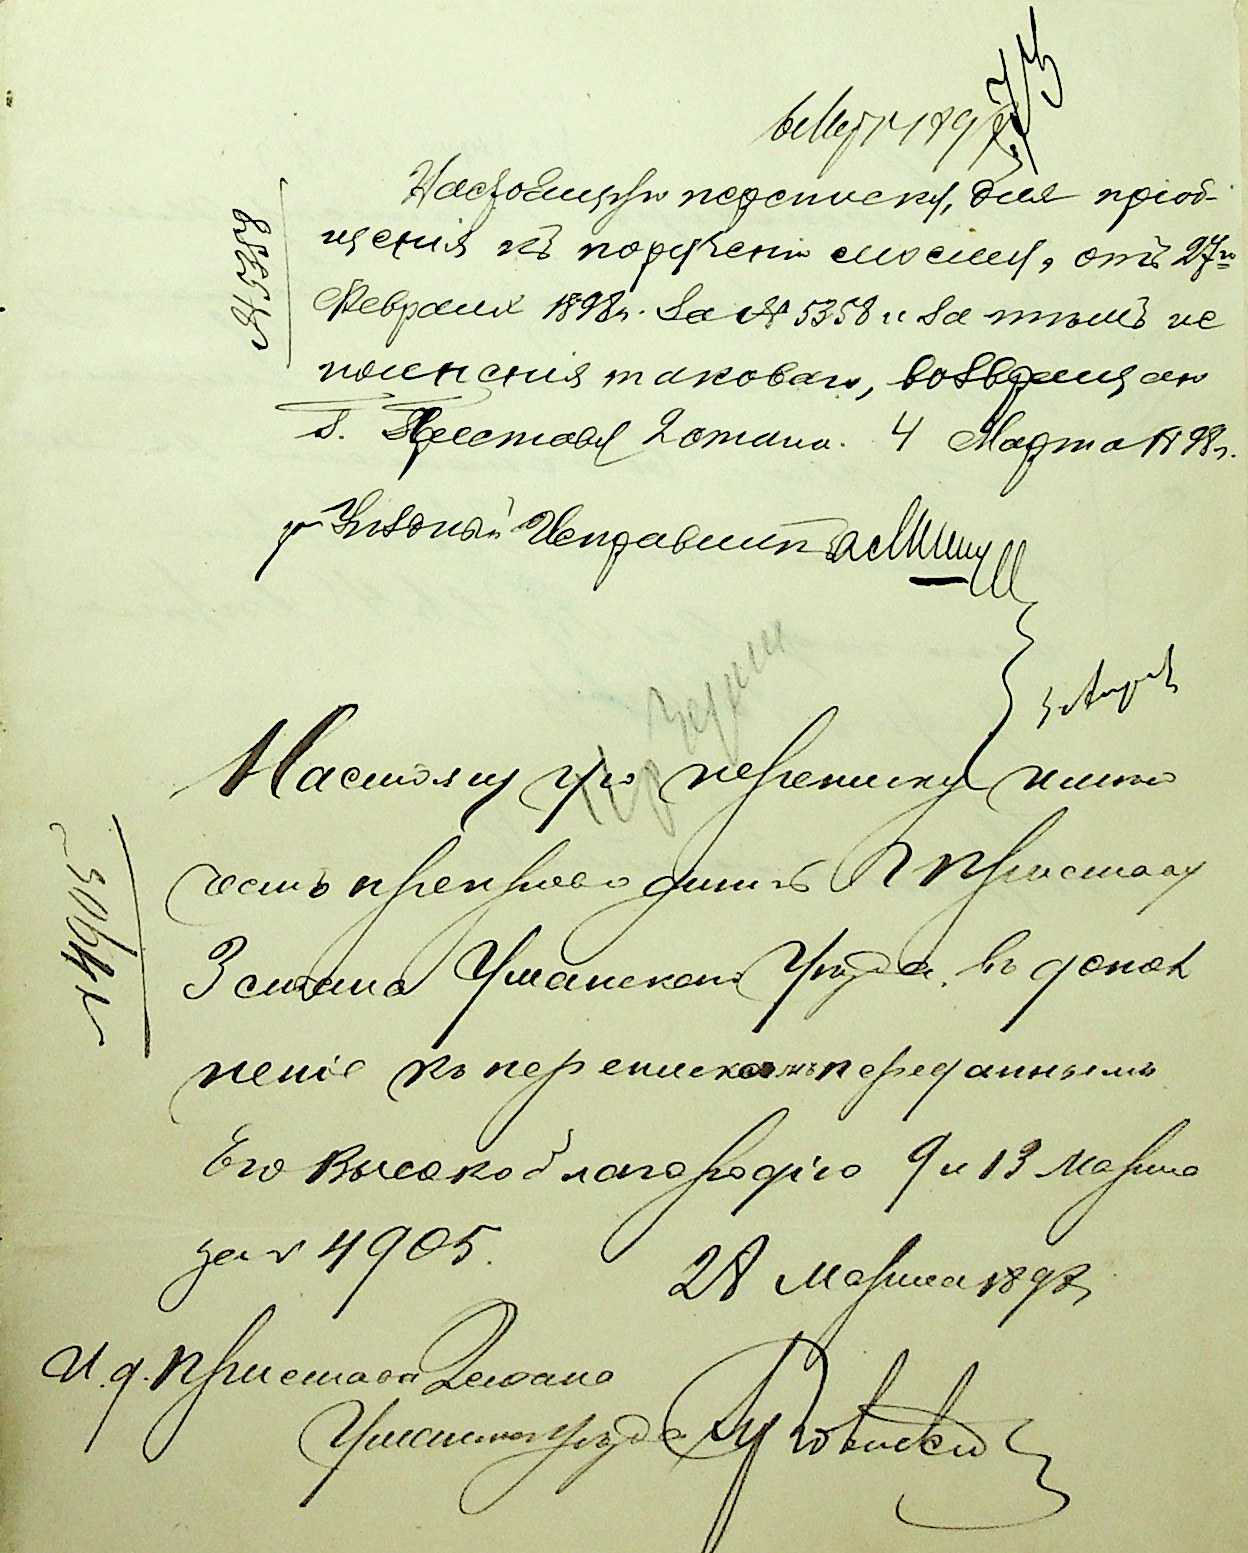 73
Настоящую переписку, для пріоб-
щенія къ порученію моему, отъ 27го
Февраля 1898 г. За № 5358 и за тѣмъ ис
полненія таковаго, возвращаю
Г. Приставу 2 стана. 4 Марта 1898 г.
Уѣздный Исправникъ
Настоящую переписку имѣю
честь препроводить Г. Приставу
3 стана Уманскаго Уѣзда, въ допол
неніе къ перепискамъ переданнымъ
Его Высокоблагородію 9 и 13 Марта
за № 4905.
28 Марта 1898 г.
И. д. Пристава 2 стана
Уманскаго Уѣзда